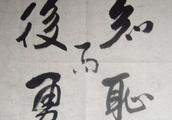 知恥
而
後勇